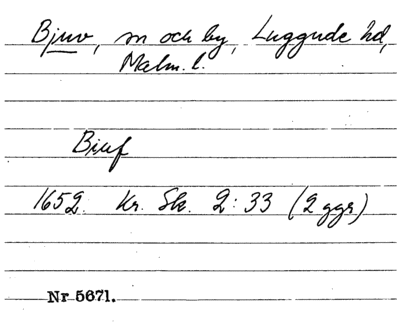 Bjuv, sn och by, Luggude hd,
Malm. l.
Biuf
1652. Kr. Sk. 2:33 (2 ggr)
Nr 5671.